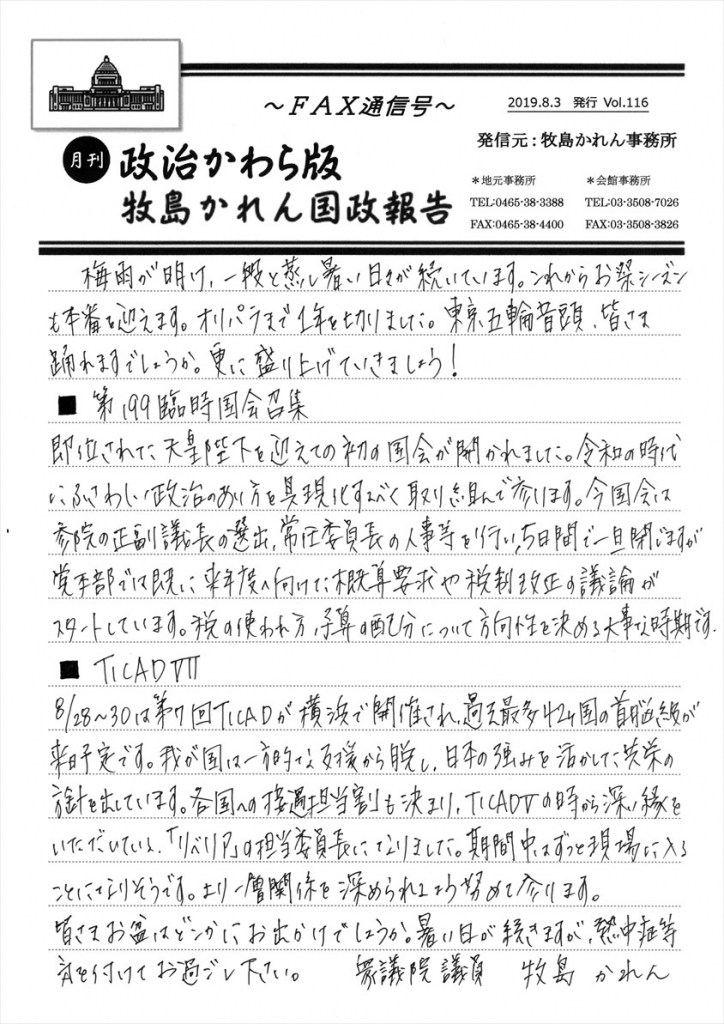 ～ＦＡＸ通信号～
2019.8.3　発行 Vol.116
発信元：牧島かれん事務所
月刊 政治かわら版
牧島かれん国政報告
＊地元事務所　＊会館事務所
TEL:0465-38-3388　TEL:03-3508-7026
FAX:0465-38-4400　FAX:03-3508-3826
梅雨が明け、一段と蒸し暑い日々が続いています。これからお祭シーズン
も本番を迎えます。オリパラまで1年を切りました。東京五輪音頭、皆さま
踊れますでしょうか。更に盛り上げていきましょう！
■ 第199臨時国会召集
即位された天皇陛下を迎えての初の国会が開かれました。令和の時代
にふさわしい政治のあり方を具現化すべく取り組んで参ります。今国会は
参院の正副議長の選出、常任委員長の人事等を行い、5日間で一旦閉じますが
党本部では既に来年度へ向けた概算要求や税制改正の議論が
スタートしています。税の使われ方、予算の配分について方向性を決める大事な時期です。
■ TICADⅦ
8/28~30は第7回TICADが横浜で開催され、過去最多42ヶ国の首脳級が
来日予定です。我が国は一方的な支援から脱し、日本の強みを活かした共栄の
方針を出しています。各国への接遇担当割も決まり、TICADⅤの時から深い縁を
いただいている、「リベリア」の担当委員長になりました。期間中はずっと現場に入る
ことになりそうです。より一層関係を深められるよう努めて参ります。
皆さまお盆はどこかにお出かけでしょうか。暑い日が続きますが、熱中症等
気を付けてお過ごし下さい。　衆議院議員　牧島かれん